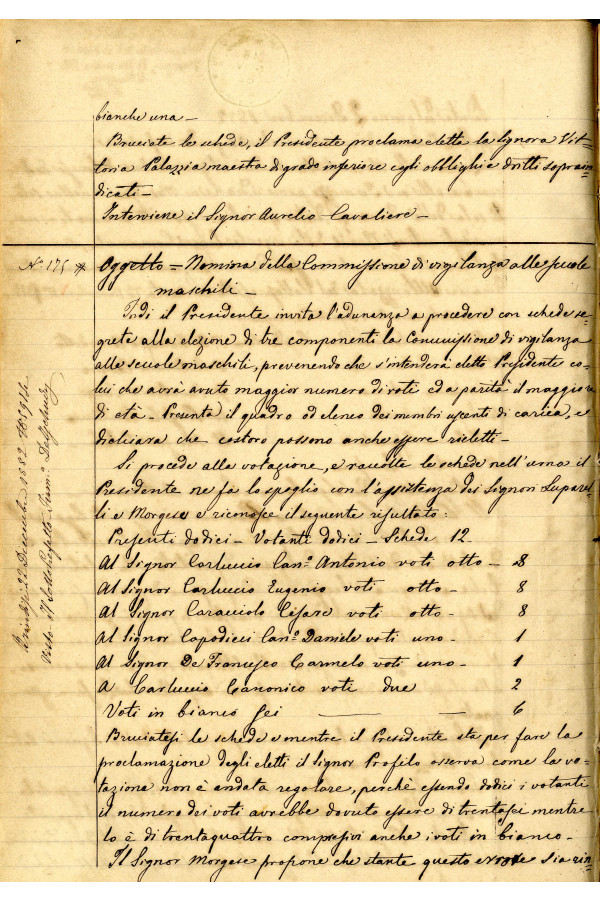 bianche una -
Bruciate le schede, il Presidente proclama eletta la Signora Vit-
toria Palazzia maestra di grado inferiore cogli obblighi e dritti soprain
dicati -
Interviene il Signor Aurelio Cavaliere -
N.° 175 Oggetto = Nomina della Commissione di vigilanza alle scuole
maschili -
Indi il Presidente invita l'adunanza a procedere con schede se-
grete alla elezione di tre componenti la Commissione di vigilanza
alle scuole maschili, prevenendo che s'intenderà eletto Presidente co-
lui che avrà avuto maggior numero di voti ed a parità il maggiore
di età - Presenta il quadro od elenco dei membri uscenti di carica, e
dichiara che costoro possono anche essere rieletti -
Si procede alla votazione, e raccolte le schede nell'urna il
Presidente ne fa lo spoglio con l'assistenza dei Signori Lupares-
li e Morgese e riconosce il seguente risultato:
Presenti dodici - Votanti dodici - Schede 12.
Al Signor Carluccio Can.° Antonio voti otto - 8
Al Signor Carluccio Eugenio voti otto - 8
Al Signor Caracciolo Cesare voti otto - 8
Al Signor Capodieci Can.° Daniele voti uno - 1
Al Signor De Francesco Carmelo voti uno - 1
A Carluccio Canonico voti due 2
Voti in bianco sei — — 6
Bruciatesi le schede e mentre il Presidente sta per fare la
proclamazione degli eletti il Signor Profilo osserva come la vo-
tazione non è andata regolare, perchè essendo dodici i votanti
il numero dei voti avrebbe dovuto essere di trentasei mentre
lo è di trentaquattro compresivi anche i voti in bianco -
Il Signor Morgese propone che stante questo errore sia rin
Brindisi 22 Dicembre 1882
Visto Il Sotto Prefetto